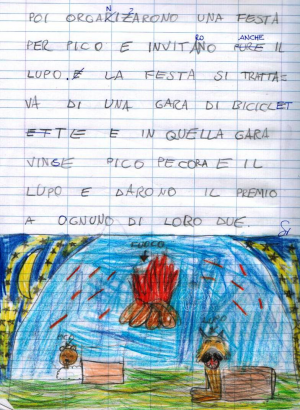 POI ORGANIZZARONO UNA FESTA
PER PICO E INVITARONO ANCHE IL
LUPO. LA FESTA SI TRATTA=
VA DI UNA GARA DI BICICLET
TE E IN QUELLA GARA
VINSE PICO PECORA E IL
LUPO E DARONO IL PREMIO
A OGNUNO DI LORO DUE.
Si
FUOCO